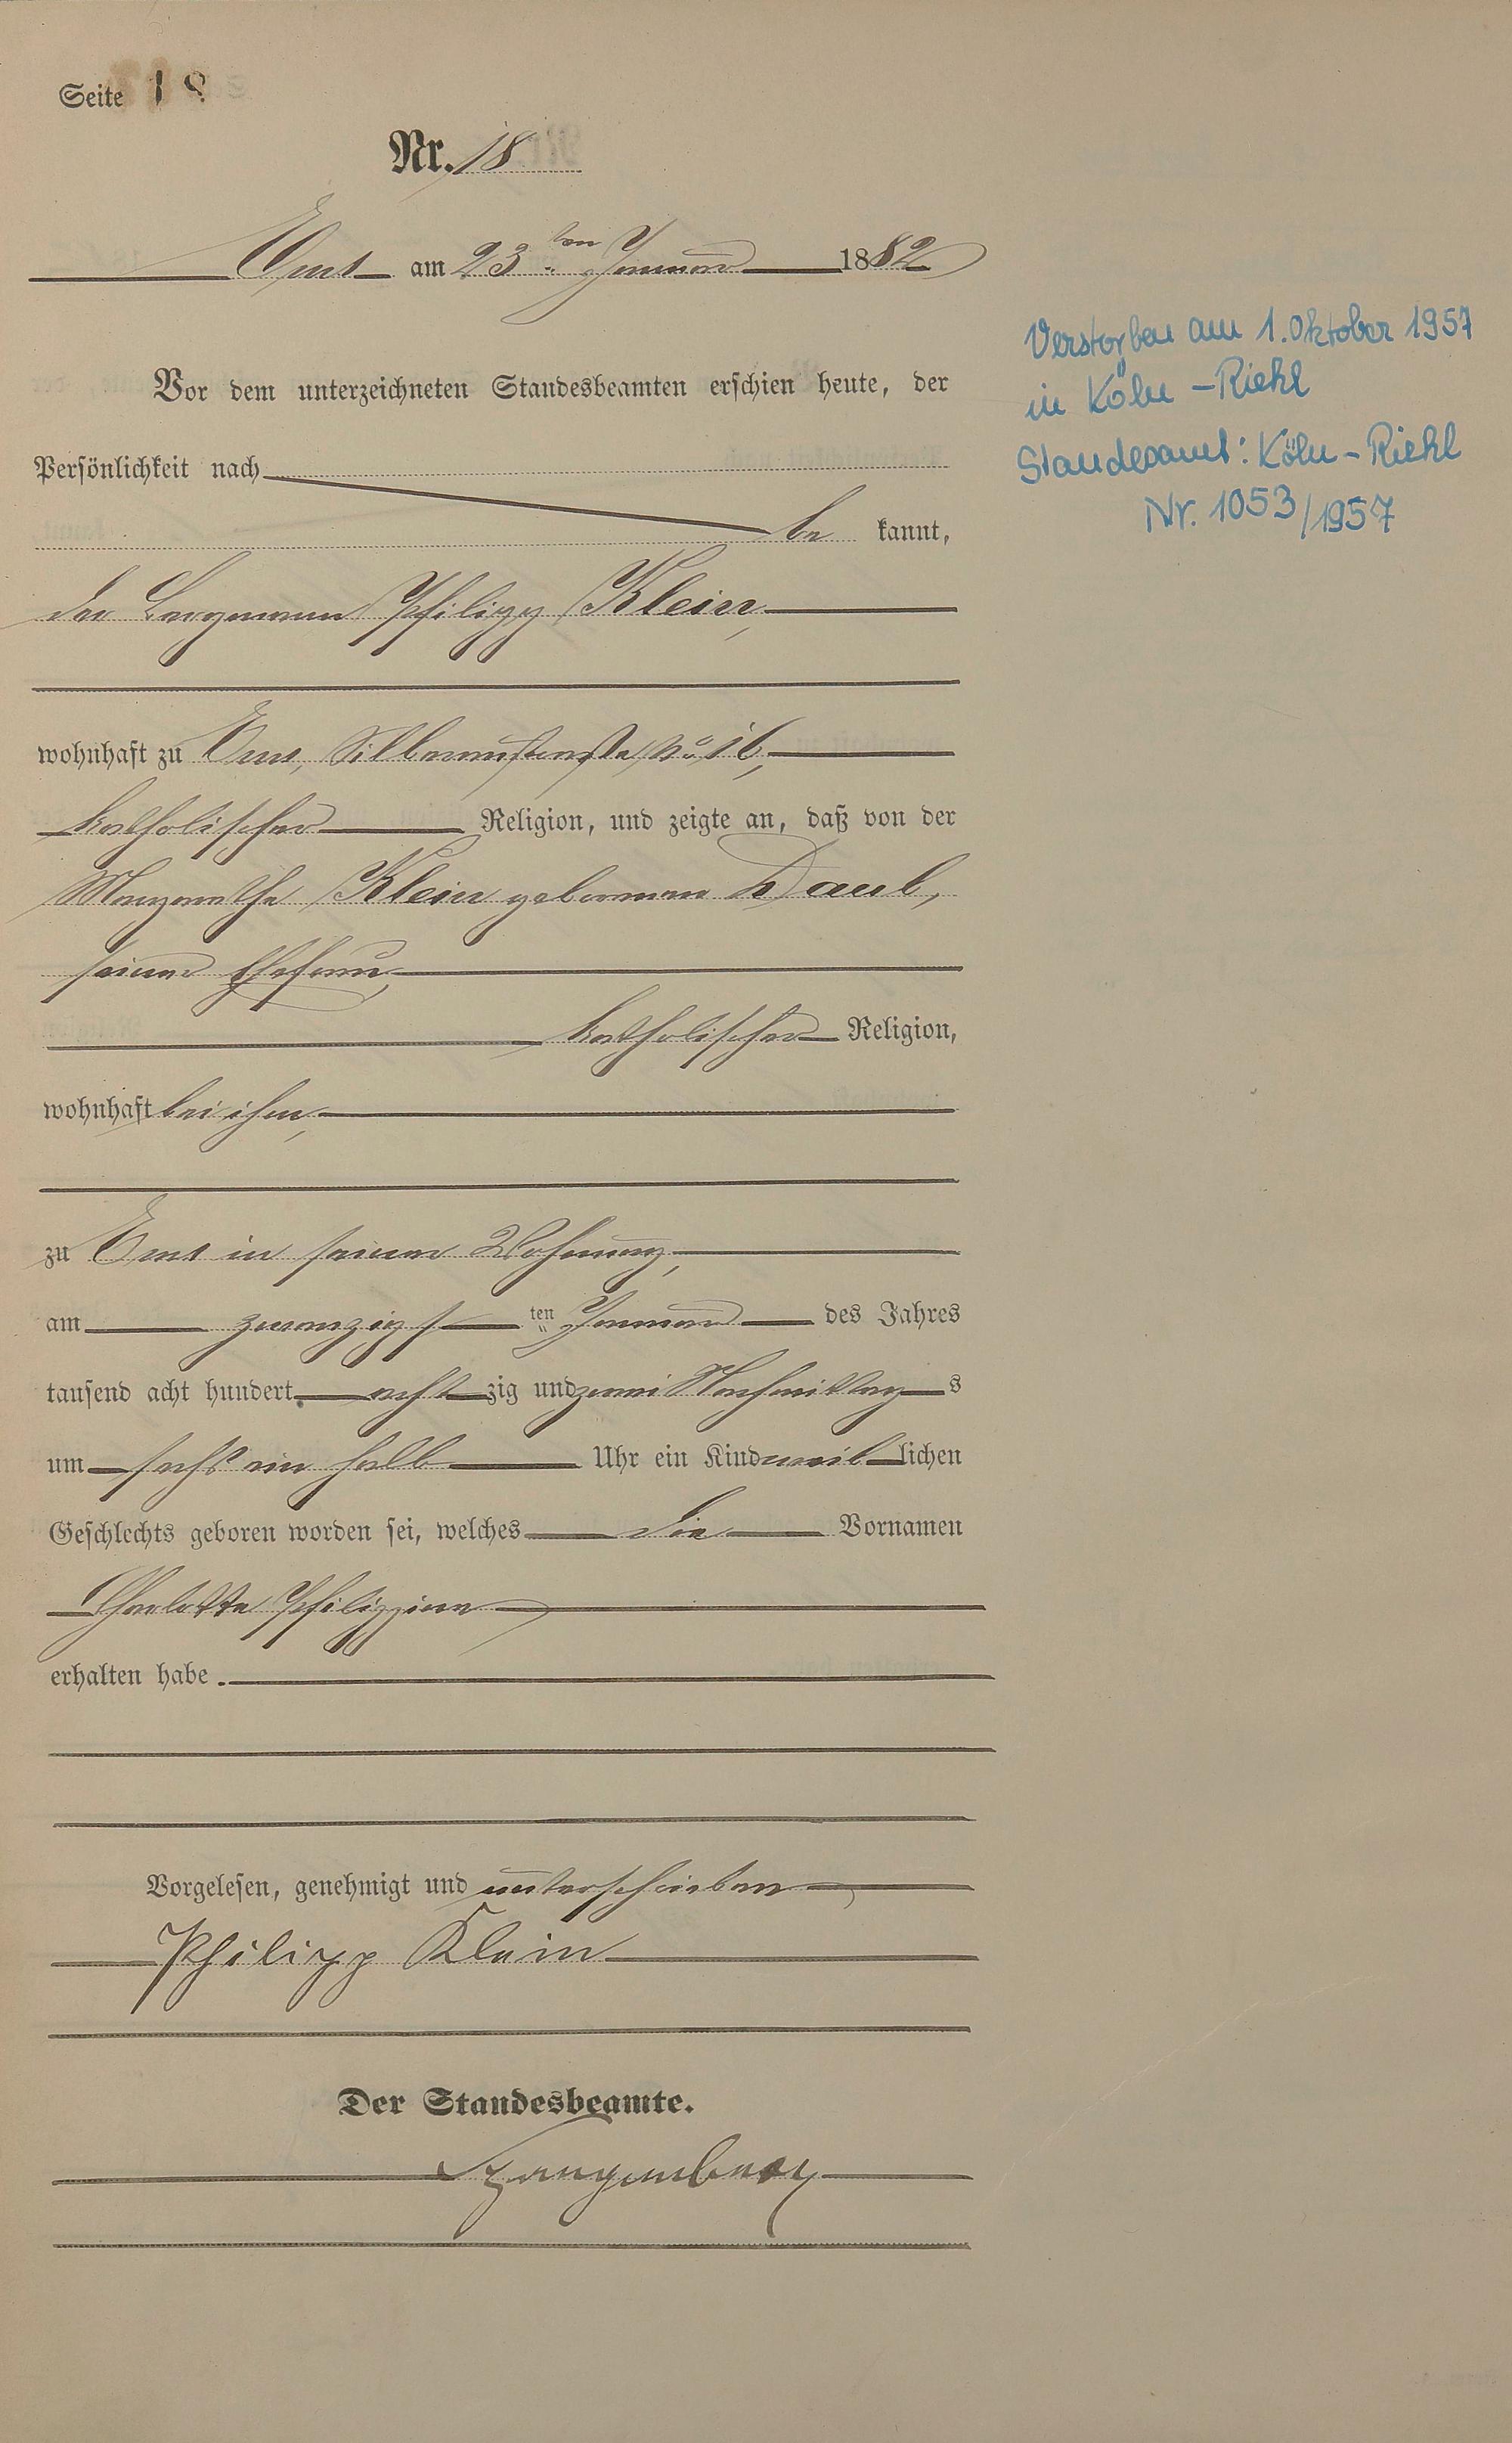 Seite 18
Nr. 18
Ems am 23ten Januar 1882
Vor dem unterzeichneten Standesbeamten erschien heute, der
Persönlichkeit nach
be kannt,
der Bergmann Philipp Klein,
wohnhaft zu Ems, No 16,
katholischer Religion, und zeigte an, daß von der
Margarethe Klein geborenen Daub,
seiner Ehefrau,
katholischer Religion,
wohnhaft bei ihm,
zu Ems in seiner Wohnung,
am zwanzigsten Januar des Jahres
tausend acht hundert achtzig und zwei Nachmittags
um sechs ein halb Uhr ein Kind weiblichen
Geschlechts geboren worden sei, welches die Vornamen
Charlotte Philippine
erhalten habe.
Vorgelesen, genehmigt und unterschrieben
Philipp Klein
Der Standesbeamte.
Verstorben am 1. Oktober 1957
in Köln - Riehl
Standesamt: Köln - Riehl
Nr. 1053/1957